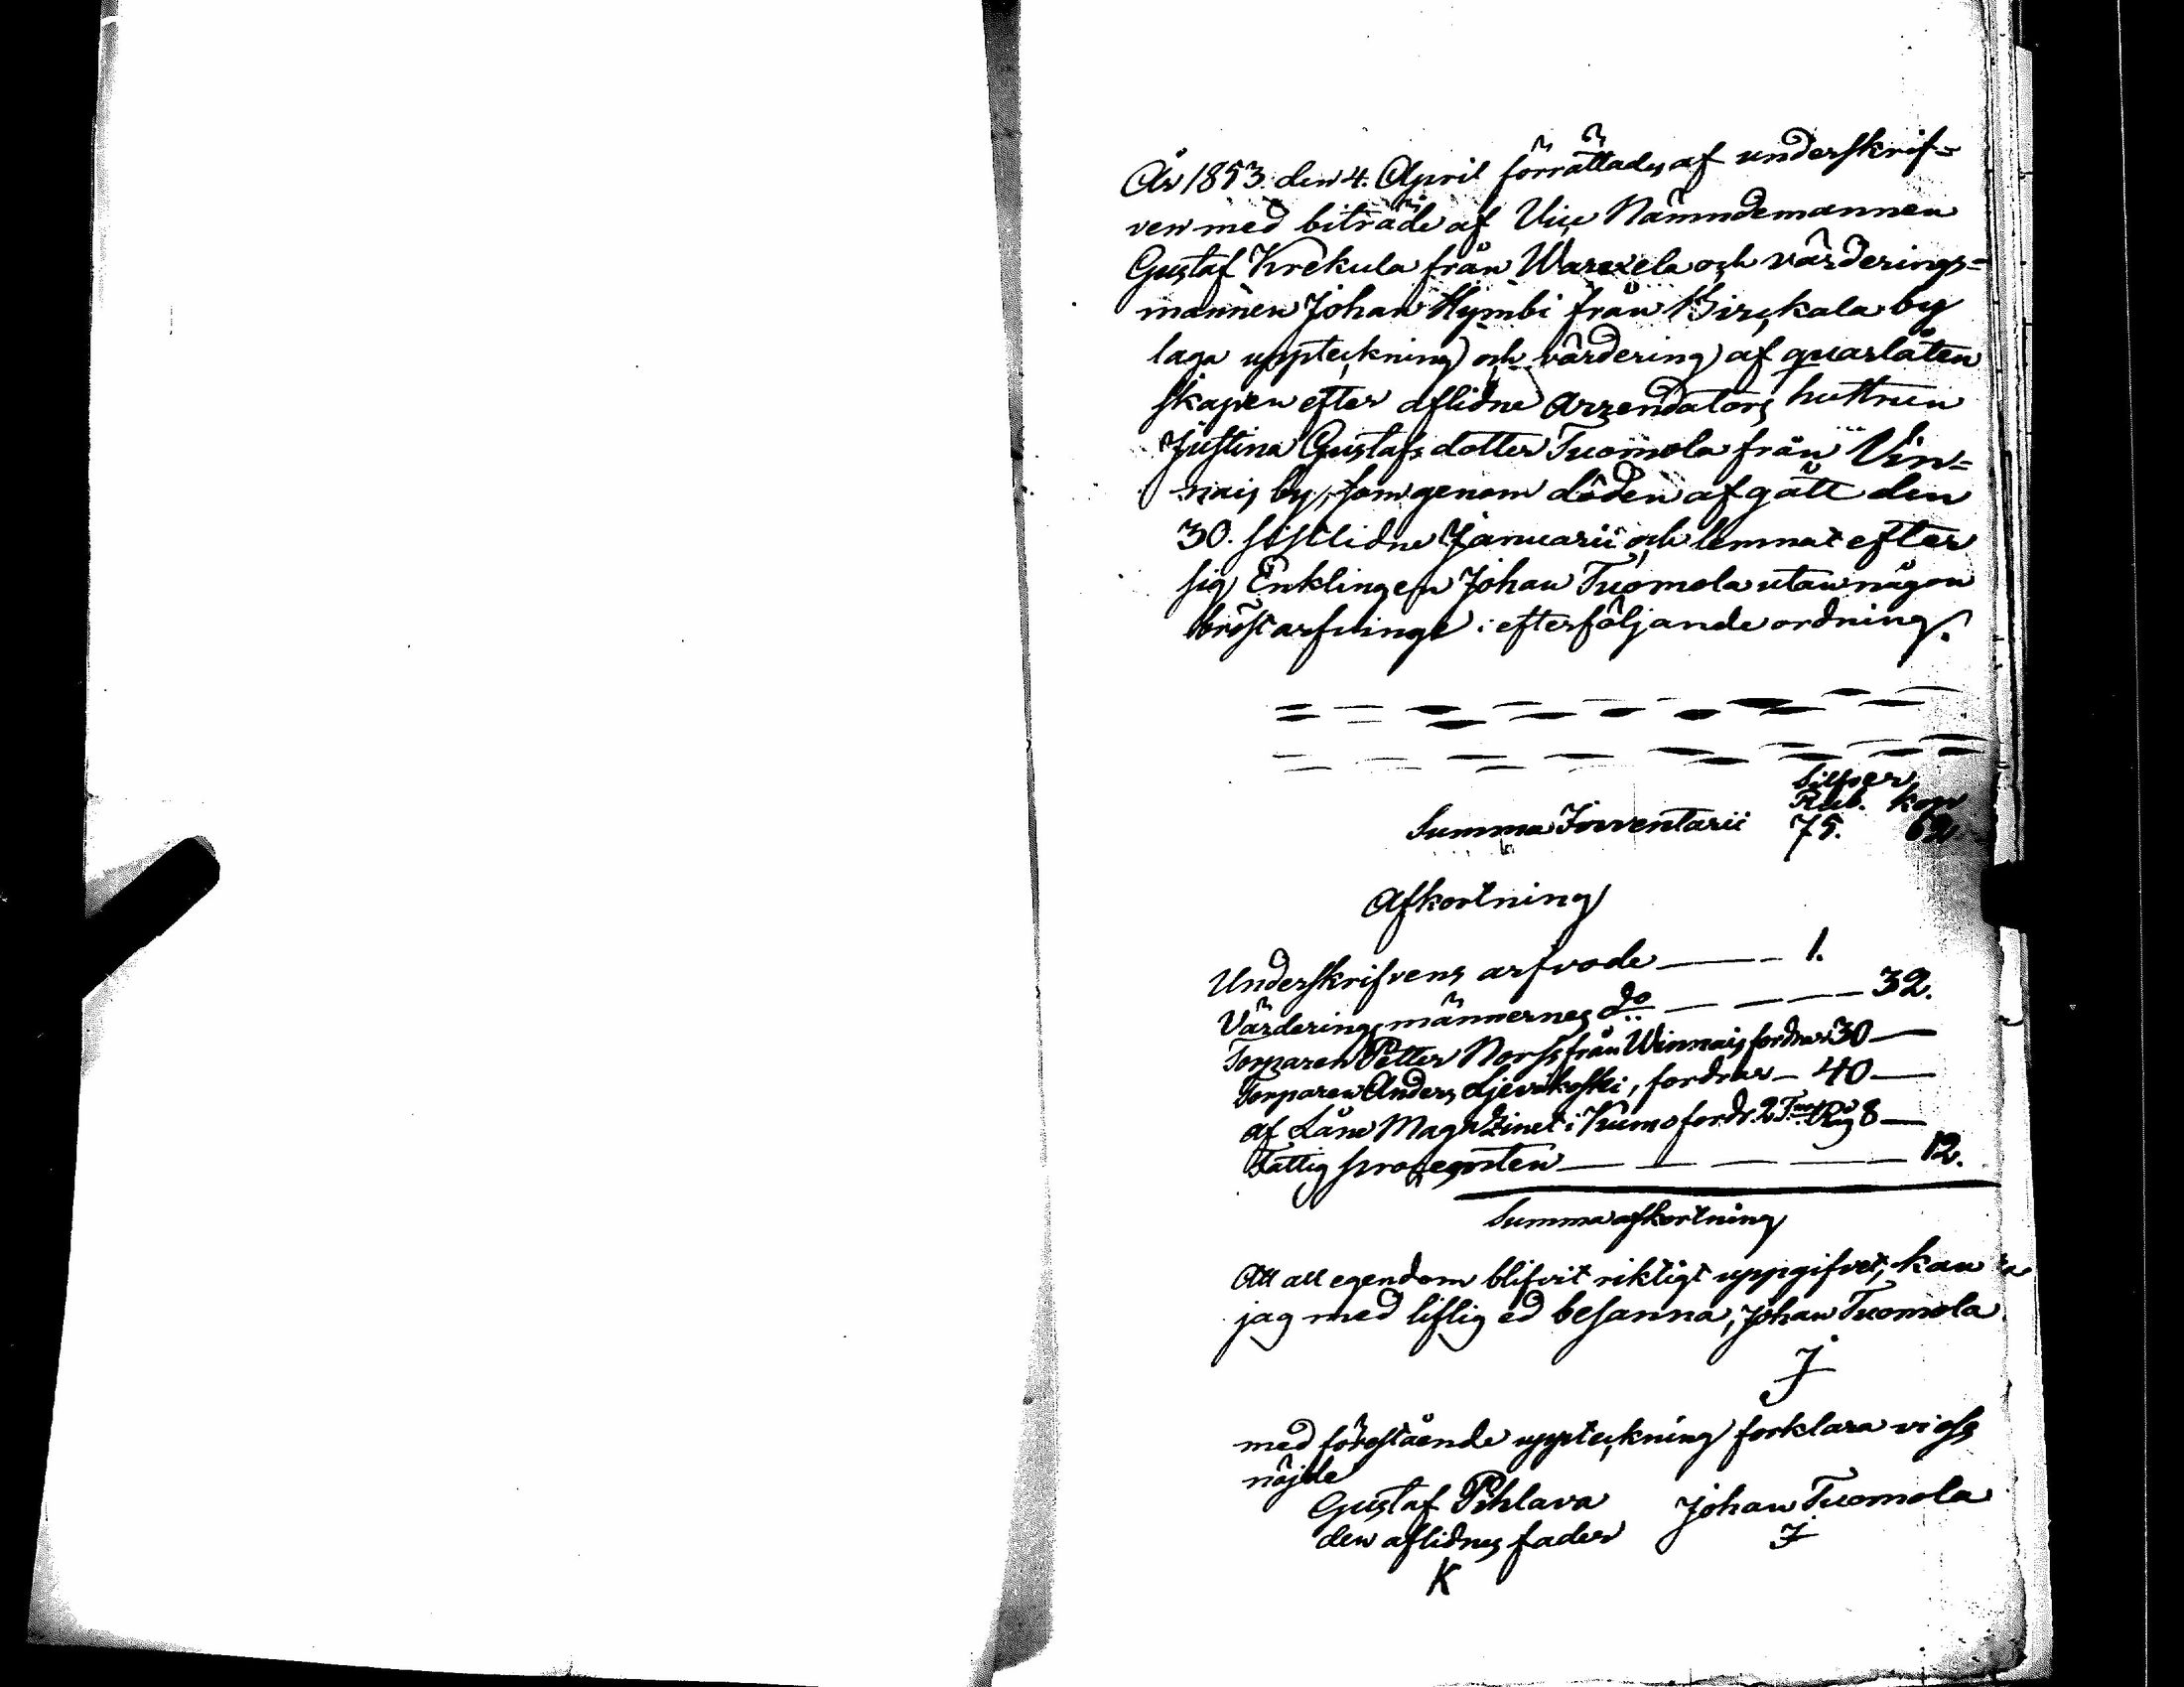 År 1853. den 4. April förrättades af underskrif=
ven med biträde af Vice Nämndemannen
Gustaf Krekula från Warexela och värderings=
mannen Johan Hyrnbi från Kirckala by
laga uppteckning och värdering af quarlåten
skapen efter aflidne Arrendators huttrun
Justina Gustafs dotter Tuomola från Vin=
nais by, som genom döden afgått den
30. sistlidne Januarii och lemnat efter
sig Enklingen Johan Tuomola utan någon
bröstarfvinge i efterföljande ordning.
Silfver
Rub. kop
Summa Inventarii 75. 62
Afkortning
Underskrifvens arfvode 1.
Värderings männernes do 32.
Torparen Petter Norss från Winnais fordrar 30
Torparen Anders Ljevikoski, fordrar 40
af Låne Magazinet i Kumo fordr. 2 Tnor Råg 8
Fattig procenten 12.
Summa afkortning
Att all egendom blifvit riktigt uppgifvet, kan
jag med liflig ed besanna, Johan Tuomola
J
med förestående uppteckning forklara vi oss
nöjde
Gustaf Pihlava Johan Tuomola
den aflidnes fader J
K